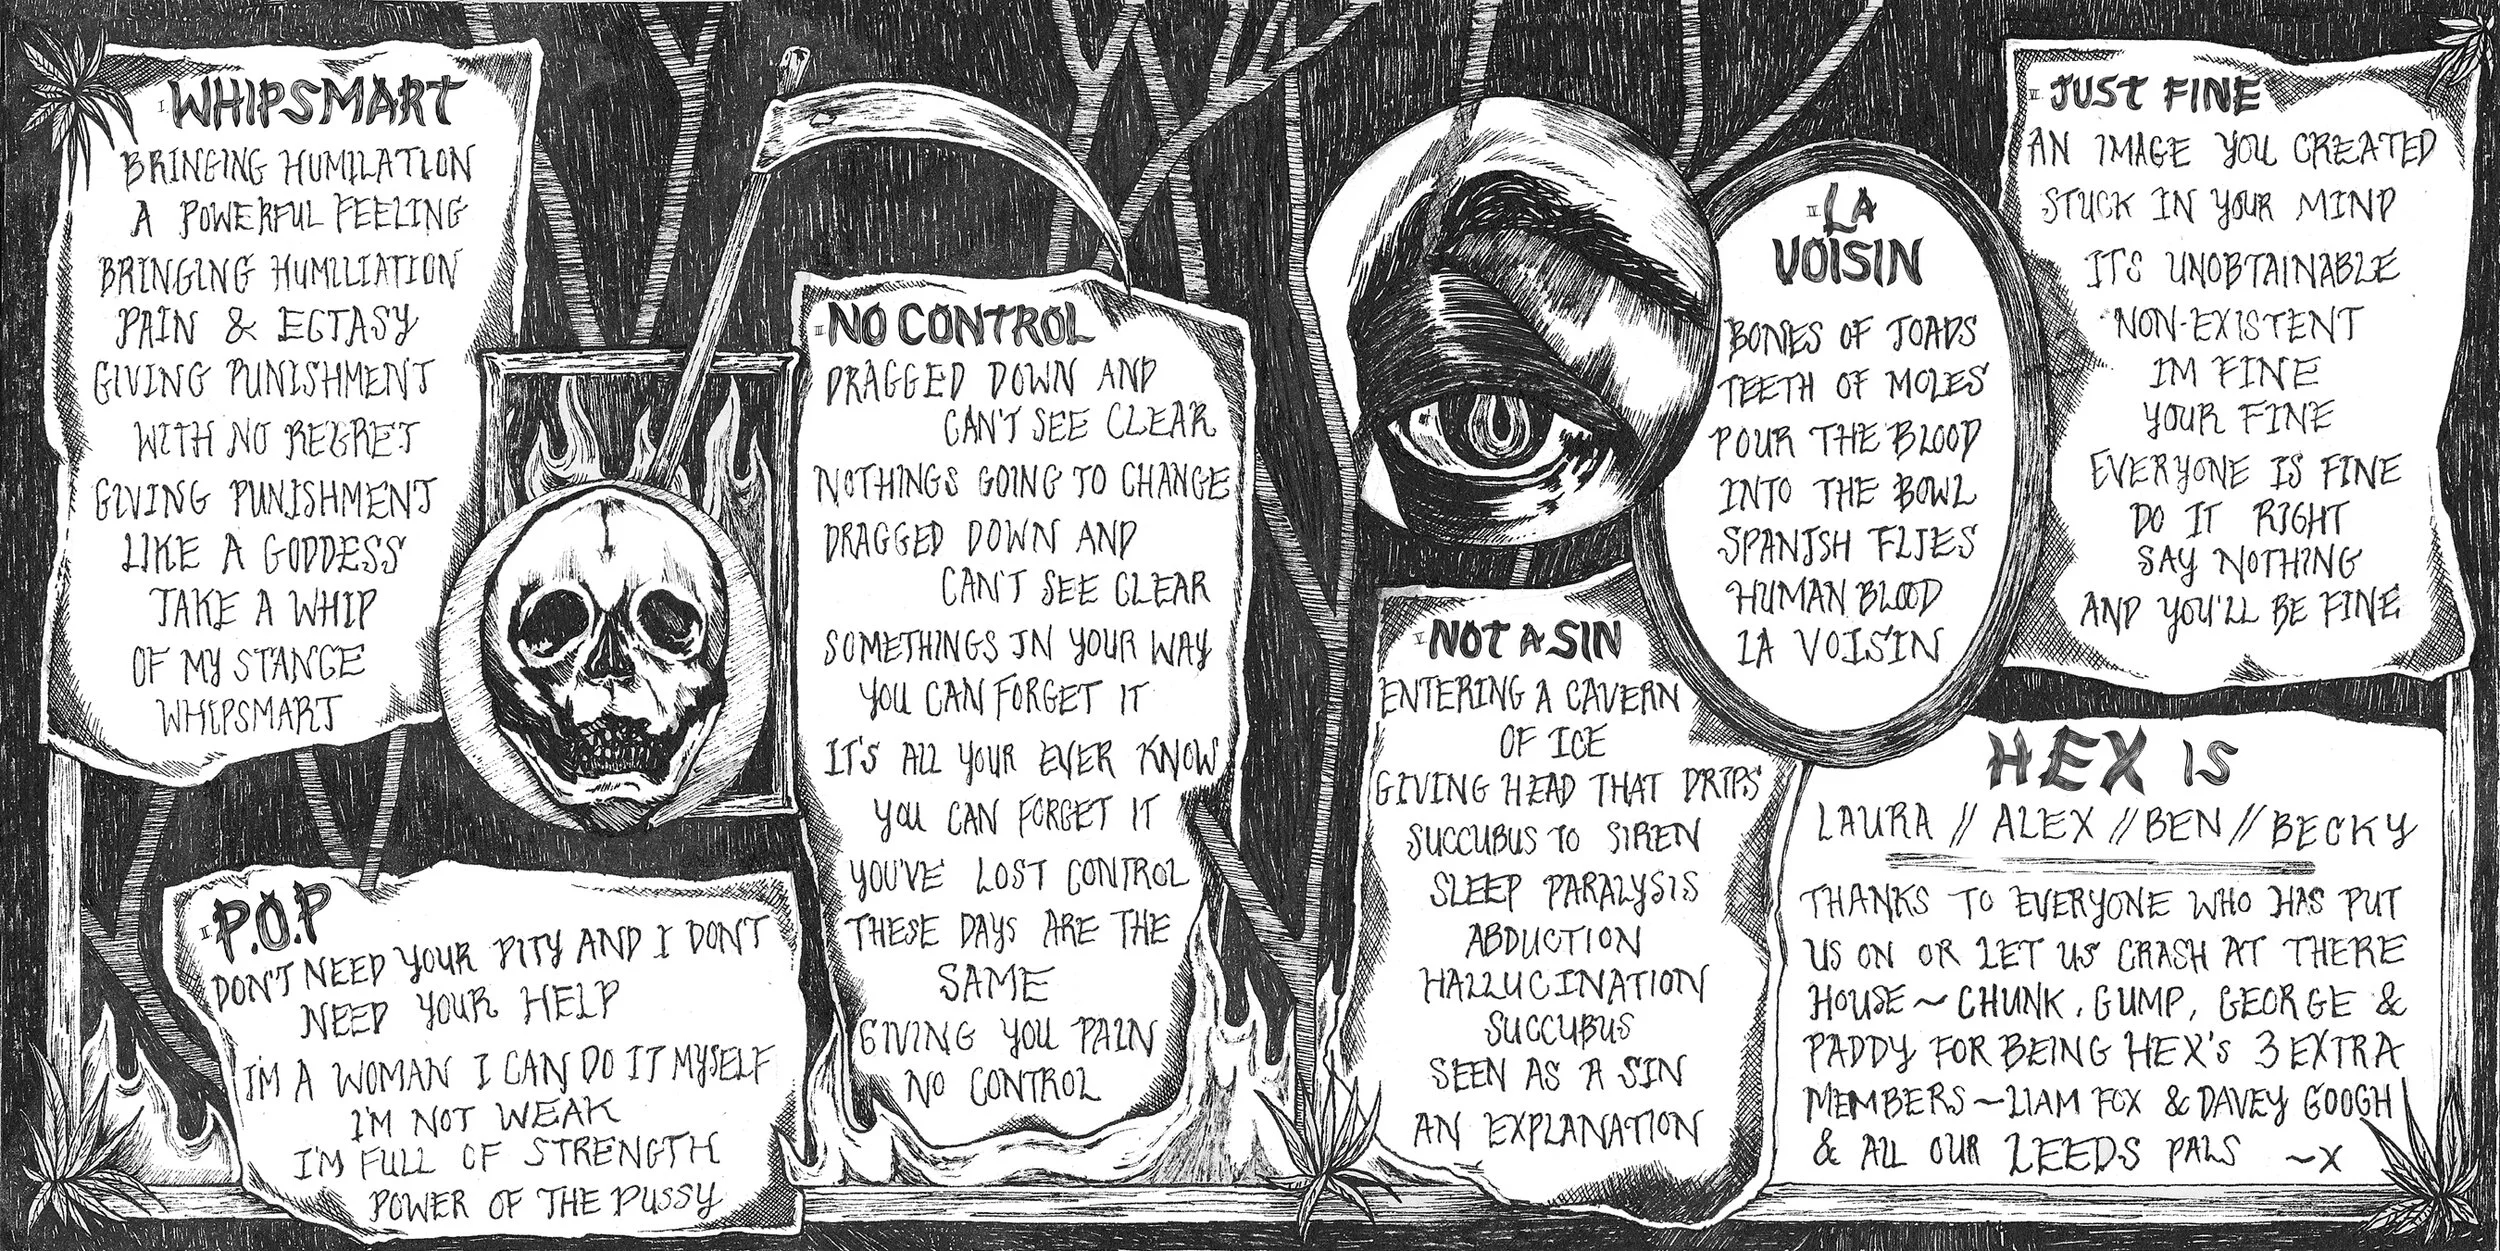 I. WHIPSMART
BRINGING HUMILATION
A POWERFUL FEELING
BRINGING HUMILIATION
PAIN & ECTASY
GIVING PUNISHMENT
WITH NO REGRET
GIVING PUNISHMENT
LIKE A GODDESS
TAKE A WHIP
OF MY STANGE
WHIPSMART
II. P.O.P
DON'T NEED YOUR PITY AND I DON'T
NEED YOUR HELP
I'M A WOMAN I CAN DO IT MYSELF
I'M NOT WEAK
I'M FULL OF STRENGTH
POWER OF THE PUSSY
III NO CONTROL
DRAGGED DOWN AND
CAN'T SEE CLEAR
NOTHINGS GOING TO CHANGE
DRAGGED DOWN AND
CAN'T SEE CLEAR
SOMETHINGS IN YOUR WAY
YOU CAN FORGET IT
IT'S ALL YOUR EVER KNOW
YOU CAN FORGET IT
YOU'VE LOST CONTROL
THESE DAYS ARE THE
SAME
GIVING YOU PAIN
NO CONTROL
IV. LA
VOISIN
BONES OF TOADS
TEETH OF MOLES
POUR THE BLOOD
INTO THE BOWL
SPANISH FLIES
HUMAN BLOOD
LA VOISIN
V. NOT A SIN
ENTERING A CAVERN
OF ICE
GIVING HEAD THAT DRIPS
SUCCUBUS TO SIREN
SLEEP PARALYSIS
ABDUCTION
HALLUCINATION
SUCCUBUS
SEEN AS A SIN
AN EXPLANATION
VI JUST FINE
AN IMAGE YOU CREATED
STUCK IN YOUR MIND
ITS UNOBTAINABLE
NON-EXISTENT
IM FINE
YOUR FINE
EVERYONE IS FINE
DO IT RIGHT
SAY NOTHING
AND YOU'LL BE FINE
HEX IS
LAURA // ALEX // BEN // BECKY
THANKS TO EVERYONE WHO HAS PUT
US ON OR LET US CRASH AT THERE
HOUSE ~ CHUNK, GUMP, GEORGE &
PADDY FOR BEING HEX'S 3 EXTRA
MEMBERS ~ LIAM FOX & DAVEY GOOGH
& ALL OUR LEEDS PALS ~X